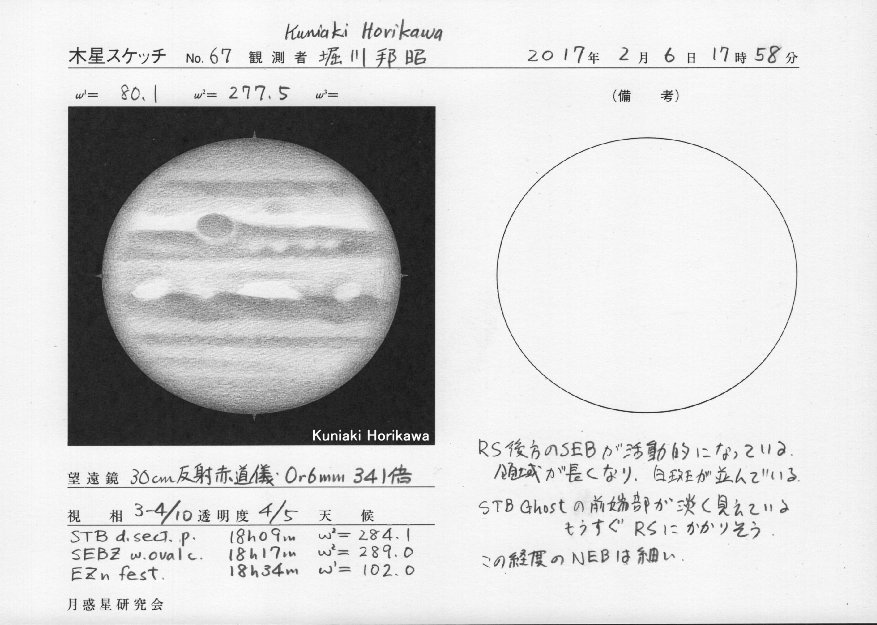 Kuniaki Horikawa
木星スケッチ No.67 観測者 堀川邦昭 2017年 2月 6日 17時 58分
ω¹= 80.1 ω²= 277.5 ω³=
(備 考)
Kuniaki Horikawa
RS後方のSEBが活動的になっている.
領域が長くなり、白斑が並んでいる.
STB Ghostの前端部が淡く見えている
もうすぐRSにかかりそう.
この経度のNEBは細い.
望遠鏡 30cm反射赤道儀 Or6mm 341倍
視 相 3-4/10 透明度 4/5 天 候
STB d.sect. p. 18h09m ω²= 284.1
SEBZ w.oval c. 18h17m ω²= 289.0
EZn fest. 18h34m ω¹= 102.0
月惑星研究会